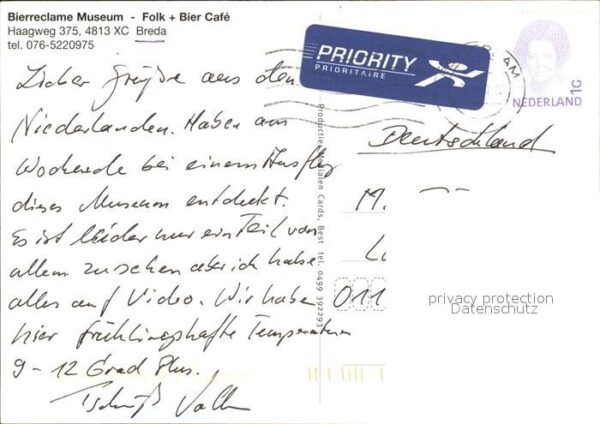 Bierreclame Museum - Folk + Bier Café
Haagweg 375, 4813 XC Breda
tel. 076-5220975
PRIORITY
PRIORITAIRE
AM
NEDERLAND
Grüße aus den
Niederlanden. Haben am
Wochende bei einem Ausflug
dieses Museum entdeckt.
Es ist leider nur ein Teil von
allem zu sehen aber ich habe
alles auf Video. Wir haben
hier frühlingshafte Temperaturen
9 - 12 Grad Plus.
Tschüß
Deutschland
M.
L
011
privacy protection
Datenschutz
Best tel. 0499 392293